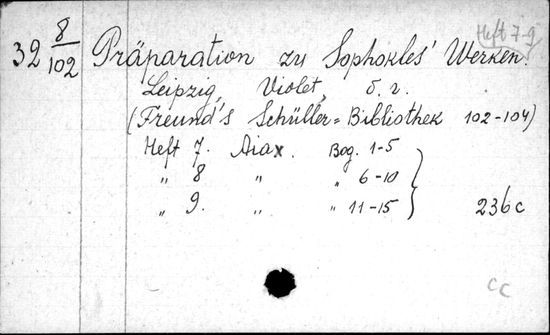 Heft 7-9
32 8/102 Präparation zu Sophokles' Werken.
Leipzig, Violet,
(Freund's Schüller=Bibliothek 102-104)
Heft 7. Aiax. Bog. 1-5
" 8 " " 6-10
" 9. " " 11-15 236 c
CC